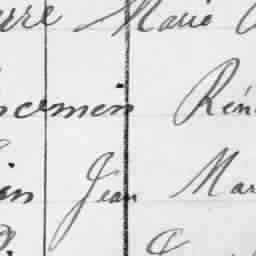 erre Marie
cemin Rén
in Jean Mar